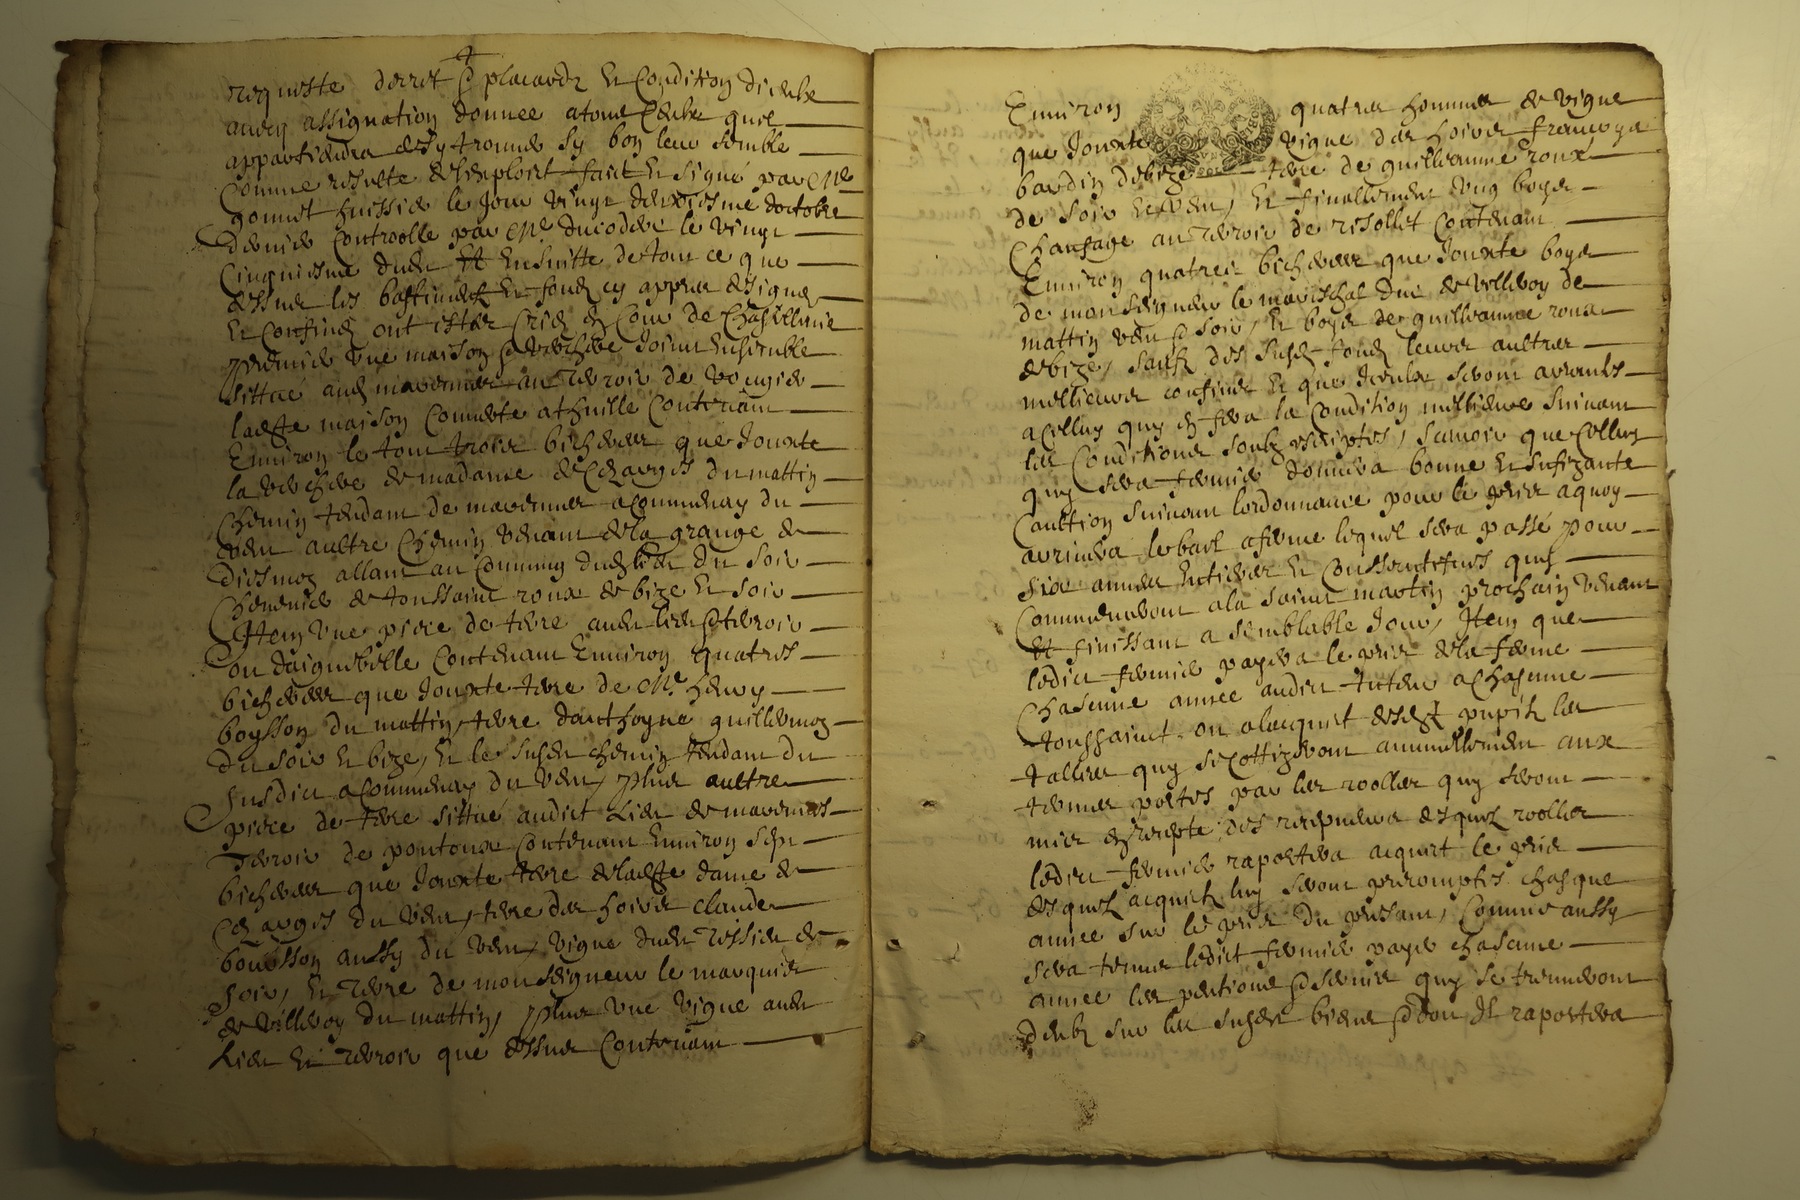 requeste decret & placardz Et Condition dicelle
avecq assignation donnee a tous Ceulx quil
appartiendra desy trouver sy bon leur semble
Comme resulte de lexploict faict Et signé par Me
gonnet huissier le Jour vingt deuxiesme doctobre
dernier Controolle par Me ducoder le vingt
Cinquiesme dudit Et Ensuitte de tout ce que
dessus les bastimentz Et fondz cy appres designez
Et Confinez ont estes Criez En Cour de
premier une maison & verchere Joint Ensemble
sittué aud marennes au terroir de
ladte maison Couverte a thuille Contenant
Environ le tout trois bicherees que Jouxte
la verchere de madame de du mattin
Chemin tendant de marennes a Communay du
vent aultre Chemin venant de la grange de
allant au Commung dud lieu du soir
de toussaint roux de bize Et soir
Item une piece de terre audit lieu & terroir
ou daiguebelle Contenant Environ quatres
bicherees que Jouxte terre de Me henry
boysson du mattin, terre danthoyne guillermoz
du soir Et bize, Et le susdit chemin tendant du
susdict a Communay du vent, plus aultre
piece de terre sittué audict Lieu de marennes
Terroir de pontoux Contenant Environ sept
bicherees que Jouxte terre de ladte dame de
du vent, terre des hoirs claude
bouisson aussy du vent, vigne dudit tissier de
soir, Et terre de monseigneur le marquis
de Villeroy du mattin, plus une vigne audit
Lieu Et terroir que dessus Contenant
Environ quatres hommes de vigne
que Jouxte vigne des hoirs francoys
bardin de bize terre de guilleaume roux
de soir Et vent, Et finallement ung boys
Chaufage au terroir de risollet Contenant
Environ quatres bicherees que Jouxte boys
de monseigneur le mareschal duc de Villeroy de
mattin vent & soir, Et boys de guilleaume roux
de bize, saufz des susd fondz leurs aultres
meilleures confins Et que Iceulx seront arrentes
a Celluy quy En fera la Condition meilieure suivant
les Conditions soubz escriptes, scavoir que Celluy
quy sera fermier donnera bonne Et sufizante
Caultion suivant lordonnance pour le prix aquoy
arrivera le bail a ferme lequel sera passé pour
six annees Entieres Et Conssecutifves quy
Commenceront a la saint martin prochain venant
Et finissant a semblable Jour, Item que
ledict fermier payera le prix de la ferme
Chascune annee audict tuteur a Chascune
toussaint ou a lacquit desdt pupilz les
tallies quy se Cottizeront annuellement aux
termes portes par les roolles quy seront
mier En recepte des recepveurs desquelz roolles
ledict fermier raportera acquit le prix
desquelz acquitz luy seront precomptes chasque
annee sur le prix du presant, Comme aussy
sera tenus ledict fermier paye chascune
annee les pentions & servis quy se treuveront
deubz sur les susdits biens & dont Il raportera